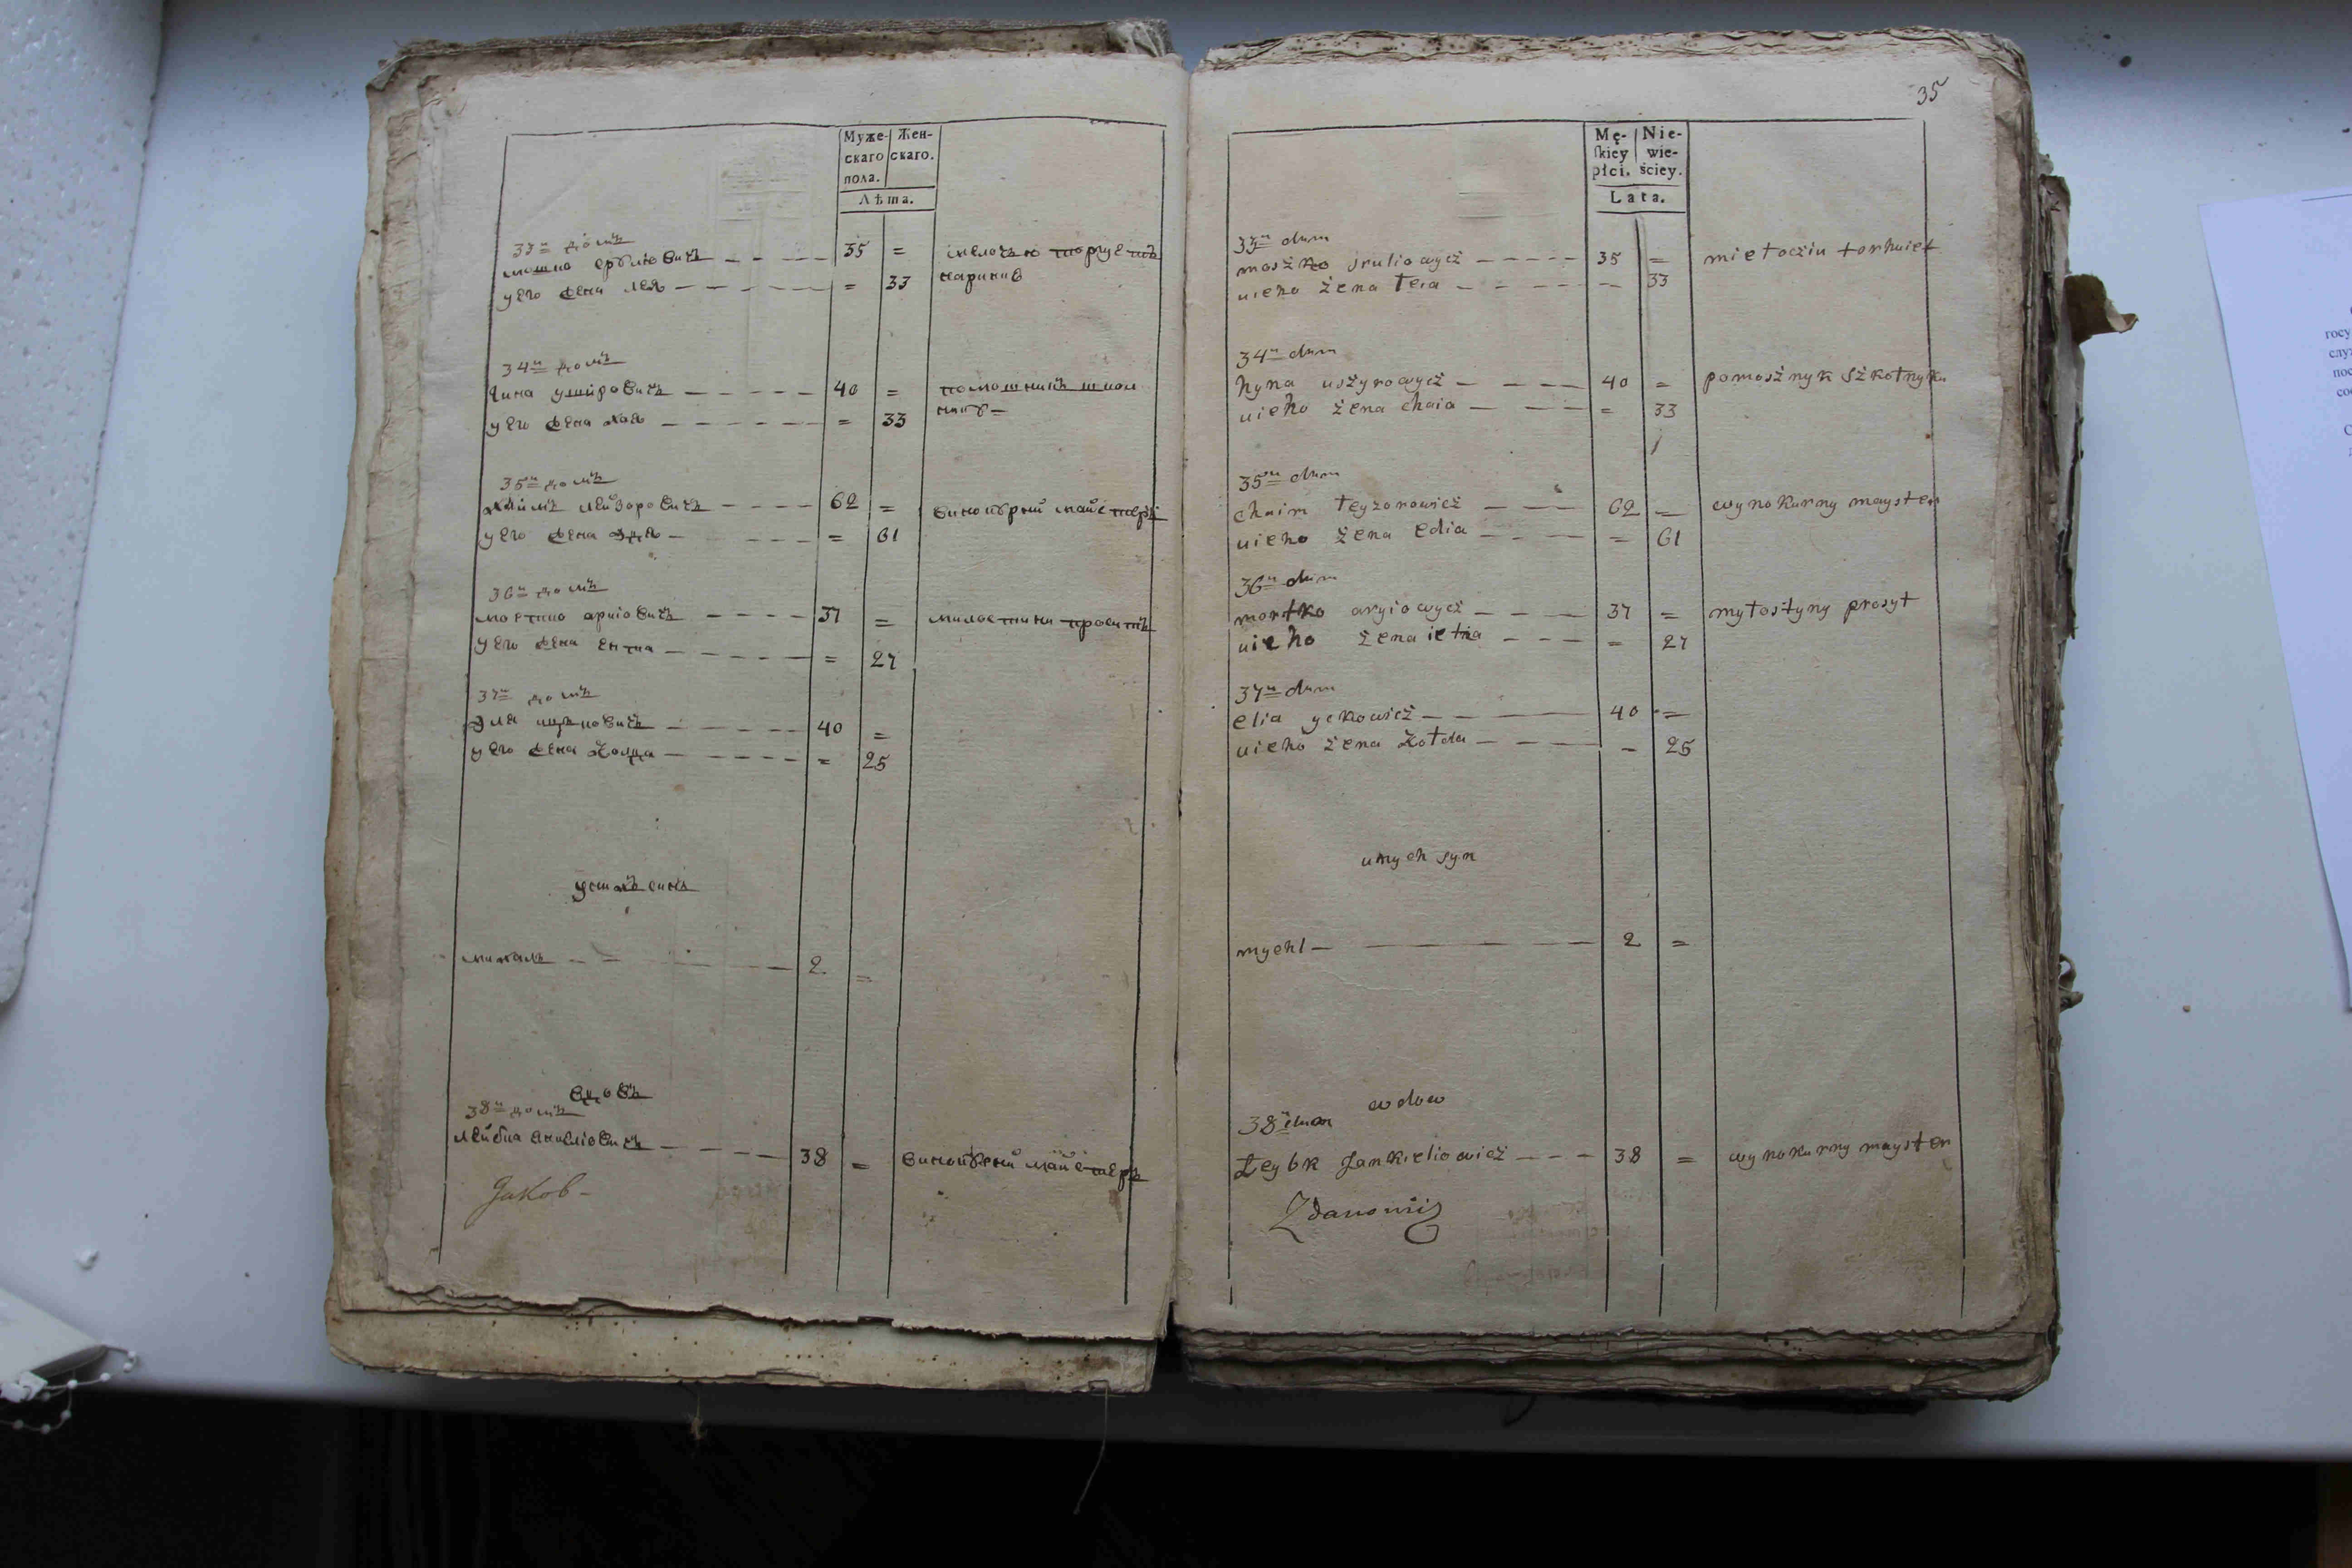 Муже-
скаго
пола.
Жен-
скаго.
Лѣта.
33й домъ
мошко срулiовичъ 35 = мелочъю торгуетъ
у его жена лея = 33
34й домъ
гина ушировичъ 40 = помошникъ школ
у его жена хая = 33 ника =
35й домъ
хаимъ лейзоровичъ 62 = винокурнй майстеръ
у его жена эдя = 61
36й домъ
мортко арiовичъ 37 = милостини проситъ
у его жена ентка = 27
37й домъ
эля ицковичъ 40 =
у его жена жолда = 25
у нихъ синъ
михаль 2 =
вдовъ
38й домъ
лейбка янкелiовичъ 38 = винокурнй майстеръ
Jakob
35
Mę-
ſkiey
płci.
Nie-
wie-
ściey.
Lata.
33й dum
moszko sruliowycż 35 = mełocżiu torhuiet
uieho żena łeia 33
34й dum
hyna uszyrowycż 40 = pomosżnyk sżkołnyka
uieho żena chaia = 33
35й dum
chaim łeyzorowicż 62 = wynokurny mayster
uieho żena edia = 61
36й dum
mortko aryiowycż 37 = myłostyny prosyt
uieho żena ietka = 27
37й dum
elia yckowicż 40 =
uieho żena Żołda 25
unych syn
mychl 2 =
wdow
38й dum
Łeybk Jankieliowicż 38 = wynokurny mayster
Zdanowicz